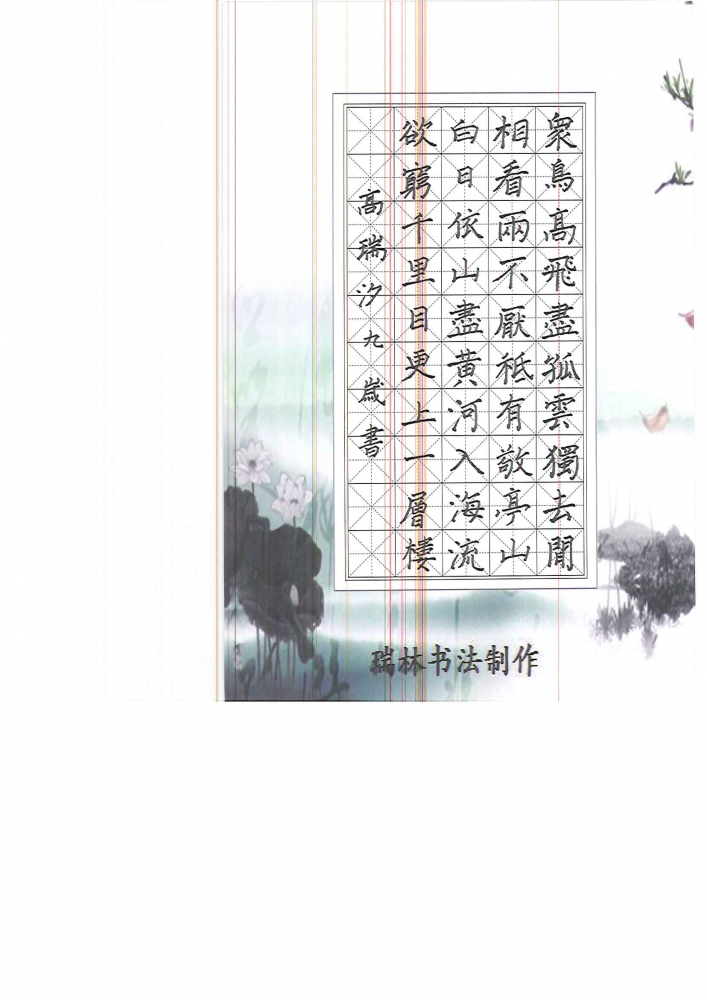 衆鳥高飛盡孤雲獨去閒
相看兩不厭衹有敬亭山
白日依山盡黄河入海流
欲窮千里目更上一層樓
高瑞汐九歳書
瑞林书法制作